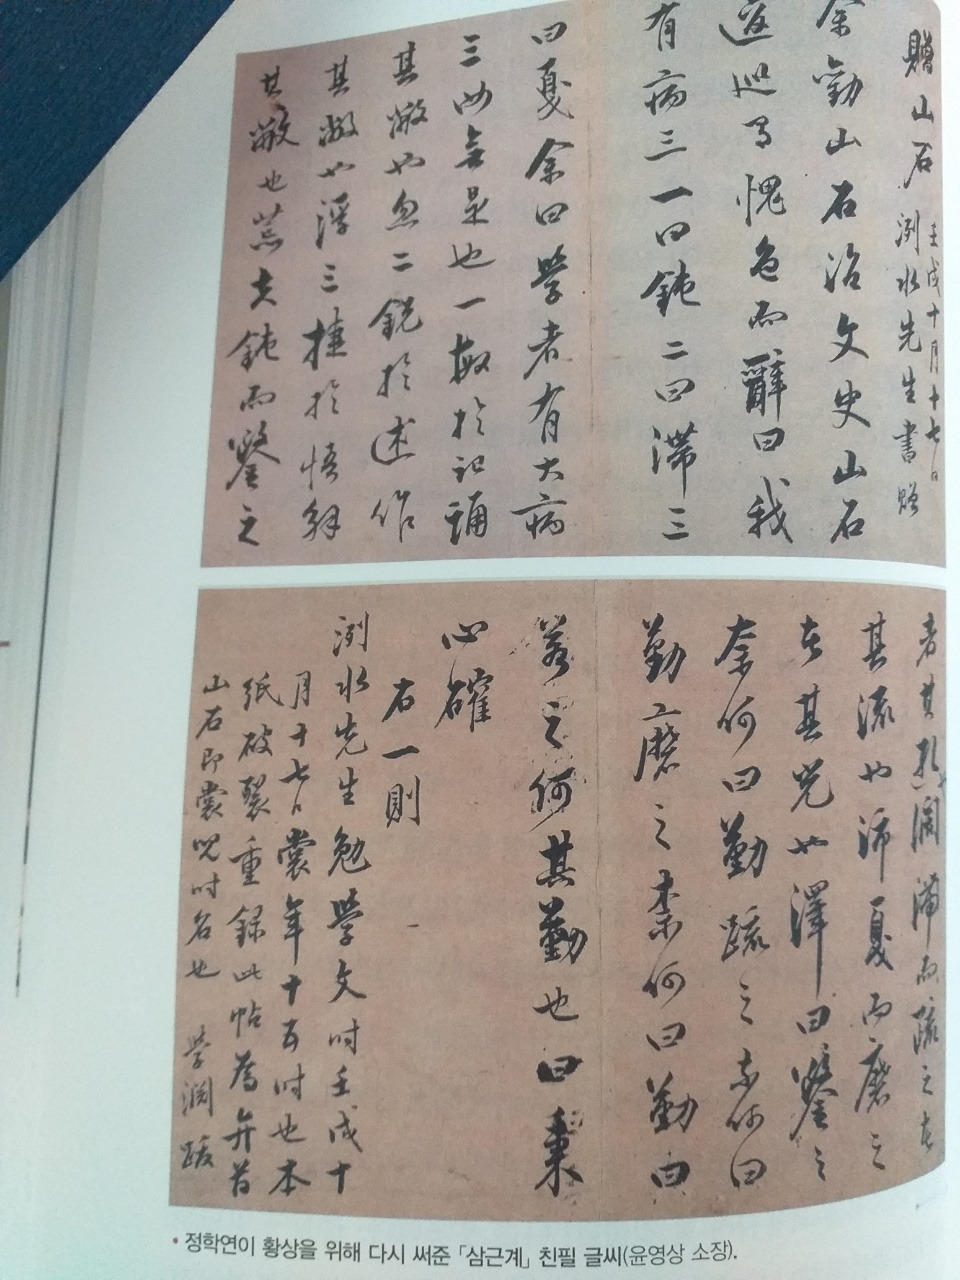 贈山石 壬戌十月十七日
洌水先生書贈
余勸山石治文史山石
逡巡有愧色而辭曰我
有病三一曰鈍二曰滯三
曰戛余曰學者有大病
三汝無是也一敏於記誦
其敝也忽二銳於述作
其敝也浮三捷於悟解
其敝也荒夫鈍而鑿之
者其孔濶滯而疏之者
其流也沛戛而磨之
者其光也澤曰鑿之
奈何曰勤疏之奈何曰
勤磨之奈何曰勤曰
若之何其勤也曰秉
心確
右一則
洌水先生勉學文時壬戌十
月十七日裳年十五時也本
紙破裂重錄此帖為弁首
山石即裳兒時名也 學淵跋
• 정학연이 황상을 위해 다시 써준 「삼근계」 친필 글씨(윤영상 소장).